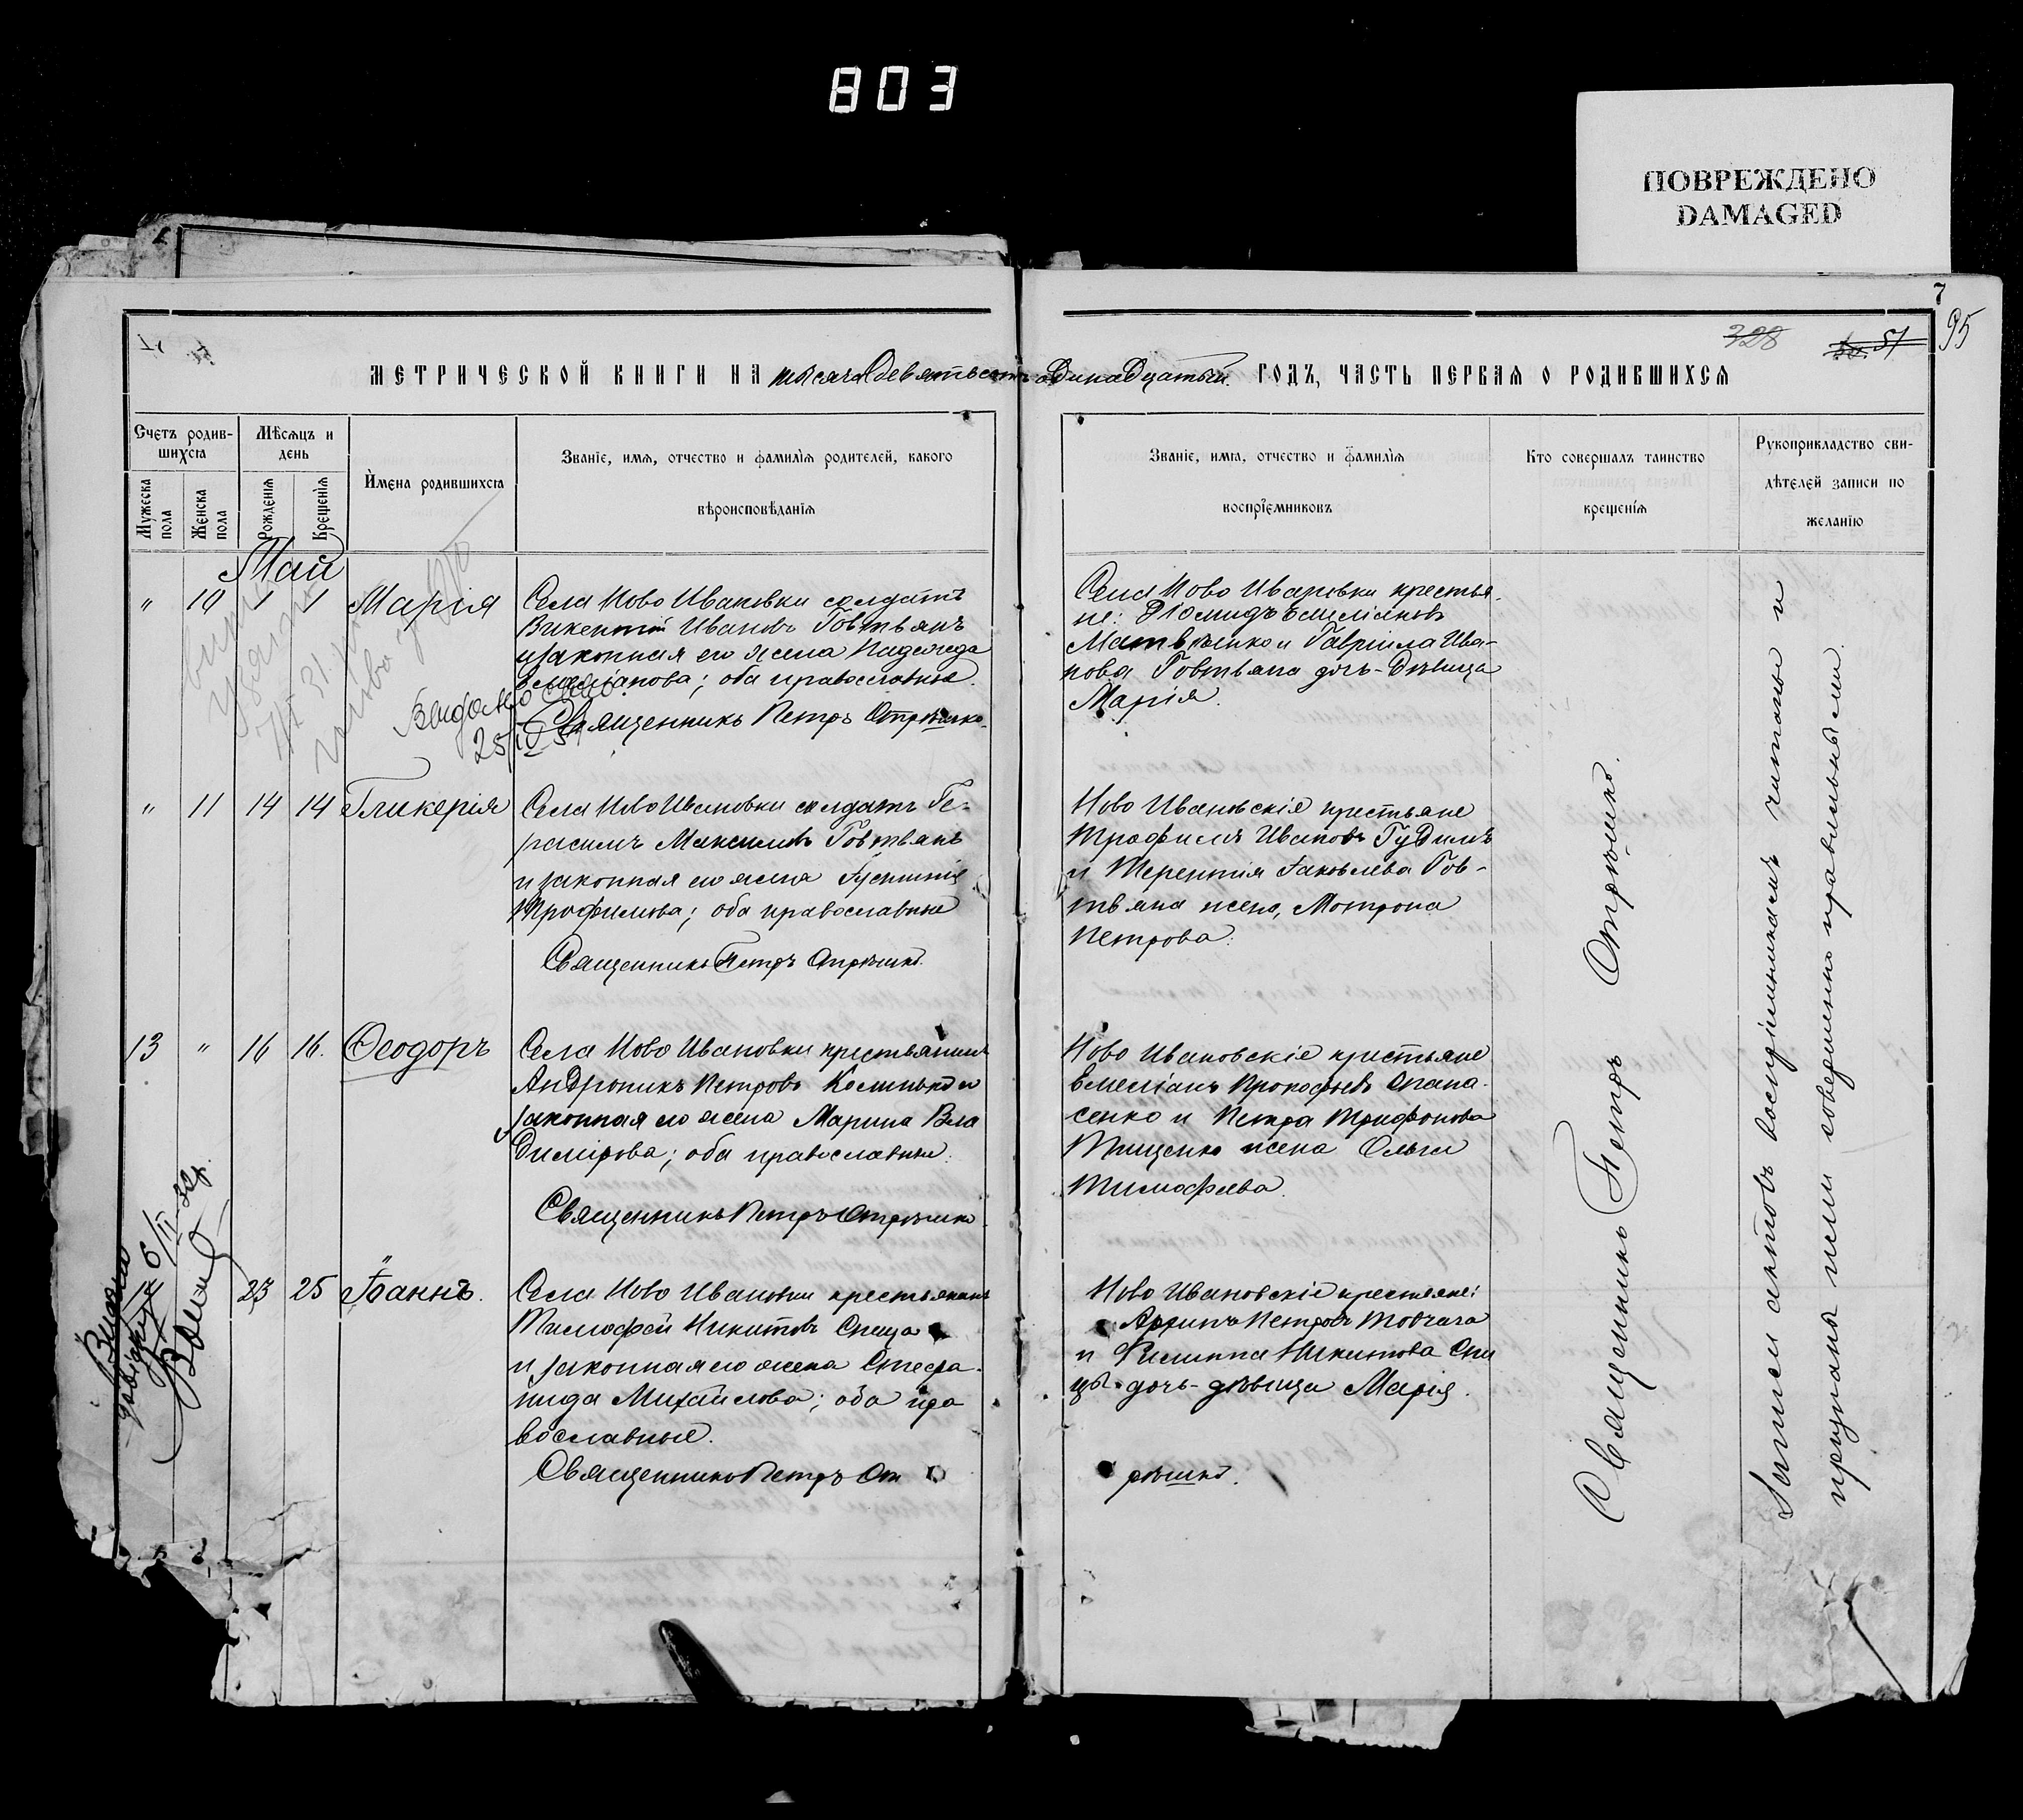 803
ПОВРЕЖДЕНО
DAMAGED
7
95
328
51
МЕТРИЧЕСКОЙ КНИГИ НА тысяча девятьсотъ одинадцатый ГОДЪ, ЧАСТЬ ПЕРВАЯ О РОДИВШИХСЯ
Счетъ родив-
шихся
Мужеска пола
Женска пола
Мѣсяцъ и
день
Рожденія
Крещенія
Имена родившихся
Званіе, имя, отчество и фамилія родителей, какого
вѣроисповѣданія
Званіе, имя, отчество и фамилія
воспріемниковъ
Кто совершалъ таинство
крещенія
Рукоприкладство сви-
дѣтелей записи по
желанію
Май
" 10 1 1 Марія
Села Ново Ивановки солдатъ
Викентій Ивановъ Говтвянъ
и законная его жена Надежда
Емеліанова; оба православные.
Священникъ Петръ Отрѣшко.
Выдано
25/IV
Села Ново Ивановки крестья-
не: Діомидъ Емеліановъ
Матвѣенко и Гавріила Ива-
нова Говтвяна дочь-дѣвица
Марія.
" 11 14 14 Гликерія
Села Ново Ивановки солдатъ Ге-
расимъ Максимовъ Говтвянъ
и законная его жена Іустинія
Трофимова; оба православные
Священникъ Петръ Отрѣшко.
Ново Ивановскіе крестьяне
Трофимъ Ивановъ Гудимъ
и Терентія Іаковлева Гов-
твяна жена, Мотрона
Петрова.
13 " 16 16. Ѳеодоръ
Села Ново Ивановки крестьянинъ
Андроникъ Петровъ и
законная его жена Марина Вла
димірова; оба православные.
Священникъ Петръ Отрѣшко.
Ново Ивановскіе крестьяне
Емеліанъ Прокофьевъ Опана-
сенко и Петра Трифонова
Тищенко жена Ольга
Тимофеева.
" 23 25 Іоаннъ.
Села Ново Ивановки крестьянинъ
Тимофей Никитовъ Спица
и законная его жена Стефа-
нида Михайлова; оба пра
вославные.
Священникъ Петръ От
рѣшко.
Ново Ивановскіе крестьяне:
Архипъ Петровъ Товчига
и Филиппа Никитова Спи
цы дочь-дѣвица Марія.
6/II
Священникъ Петръ Отрѣшко.
Записи актовъ воспріемникамъ читаны и
признаны ими совершенно правильными.